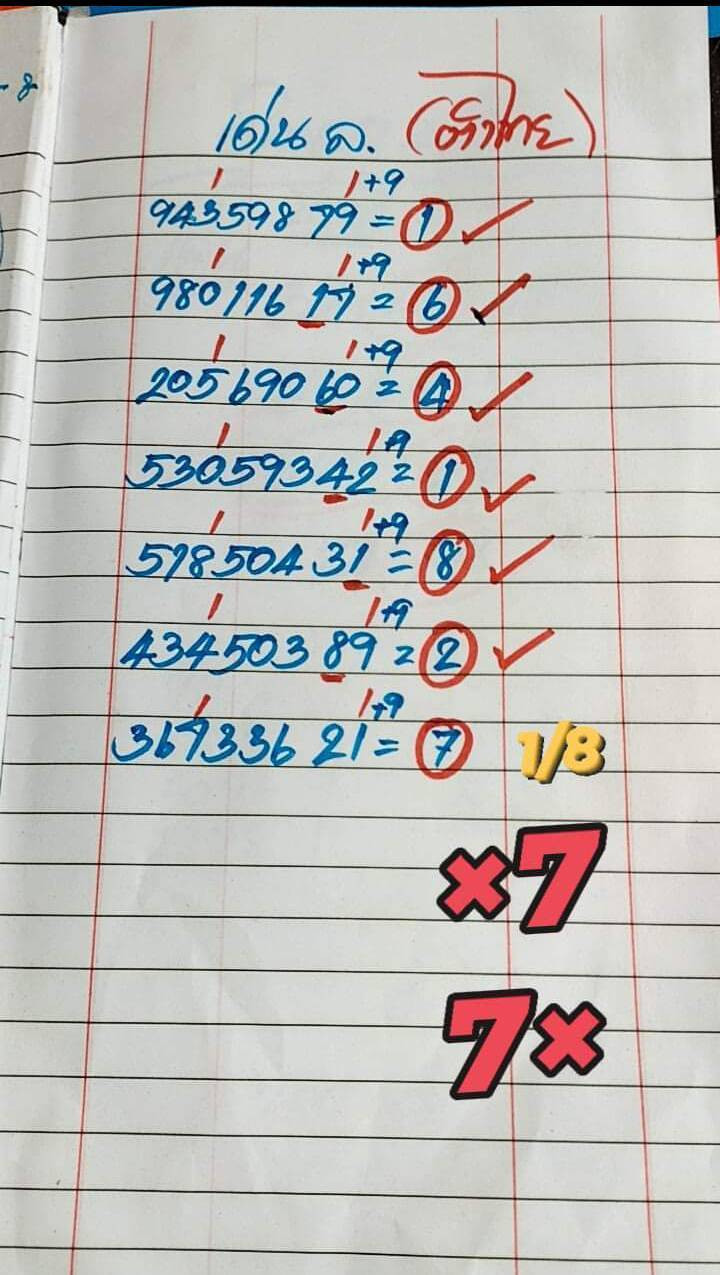 -8
เด่น ล. (ตัวไทย)
+9
943598 79 = 1
+9
980116 17 = 6
+9
2056690 60 = 4
+9
5305934 2 = 1
+9
5785043 1 = 8
+9
434503 89 = 2
+9
367336 21 = 7 1/8
×7
7×